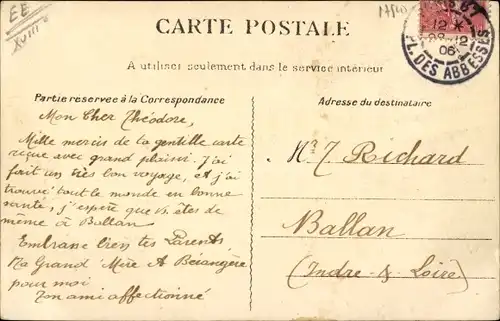 EE
XVIII
CARTE POSTALE
12 *
12
06
PL. DES ABBESSES
A utiliser seulement dans le service intérieur
Partie reservee à la Correspondance
Adresse du destinataire
Mon Cher Théodore,
Mille mercis de ta gentille carte
riçue avec grand plaisir. J'ai
fait un très bon voyage, et j'ai
trouvé tout le monde en bonne
santé, j'espère que vs. êtes de
même à Ballan
Embrasse bien tes Parents,
Ta Grand'Mère & Bérangère
pour moi
Ton ami affectionné
Mr T. Richard
Ballan
(Indre-&-Loire)